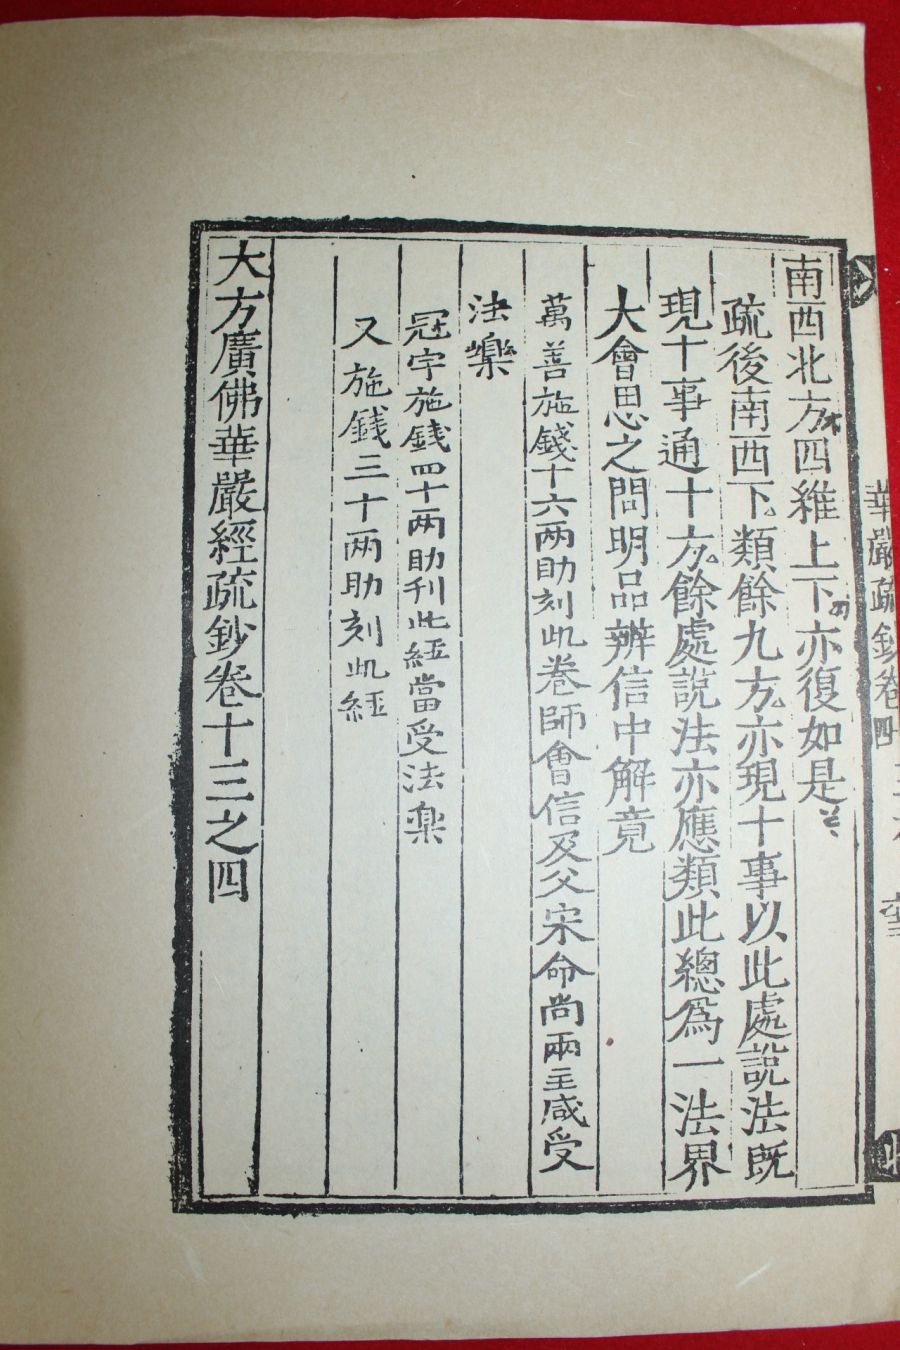 南西北方四維上下亦復如是
疏後南西下類餘九方亦現十事以此處說法旣
現十事通十方餘處說法亦應類此總爲一法界
大會思之問明品辨信中解竟
萬善施錢十六兩助刻此卷師會信及父宋命尚兩主咸受
法樂
冠宇施錢四十兩助刊此経當受法樂
又施錢三十兩助刻此経
大方廣佛華嚴經疏鈔卷十三之四
華嚴疏鈔卷